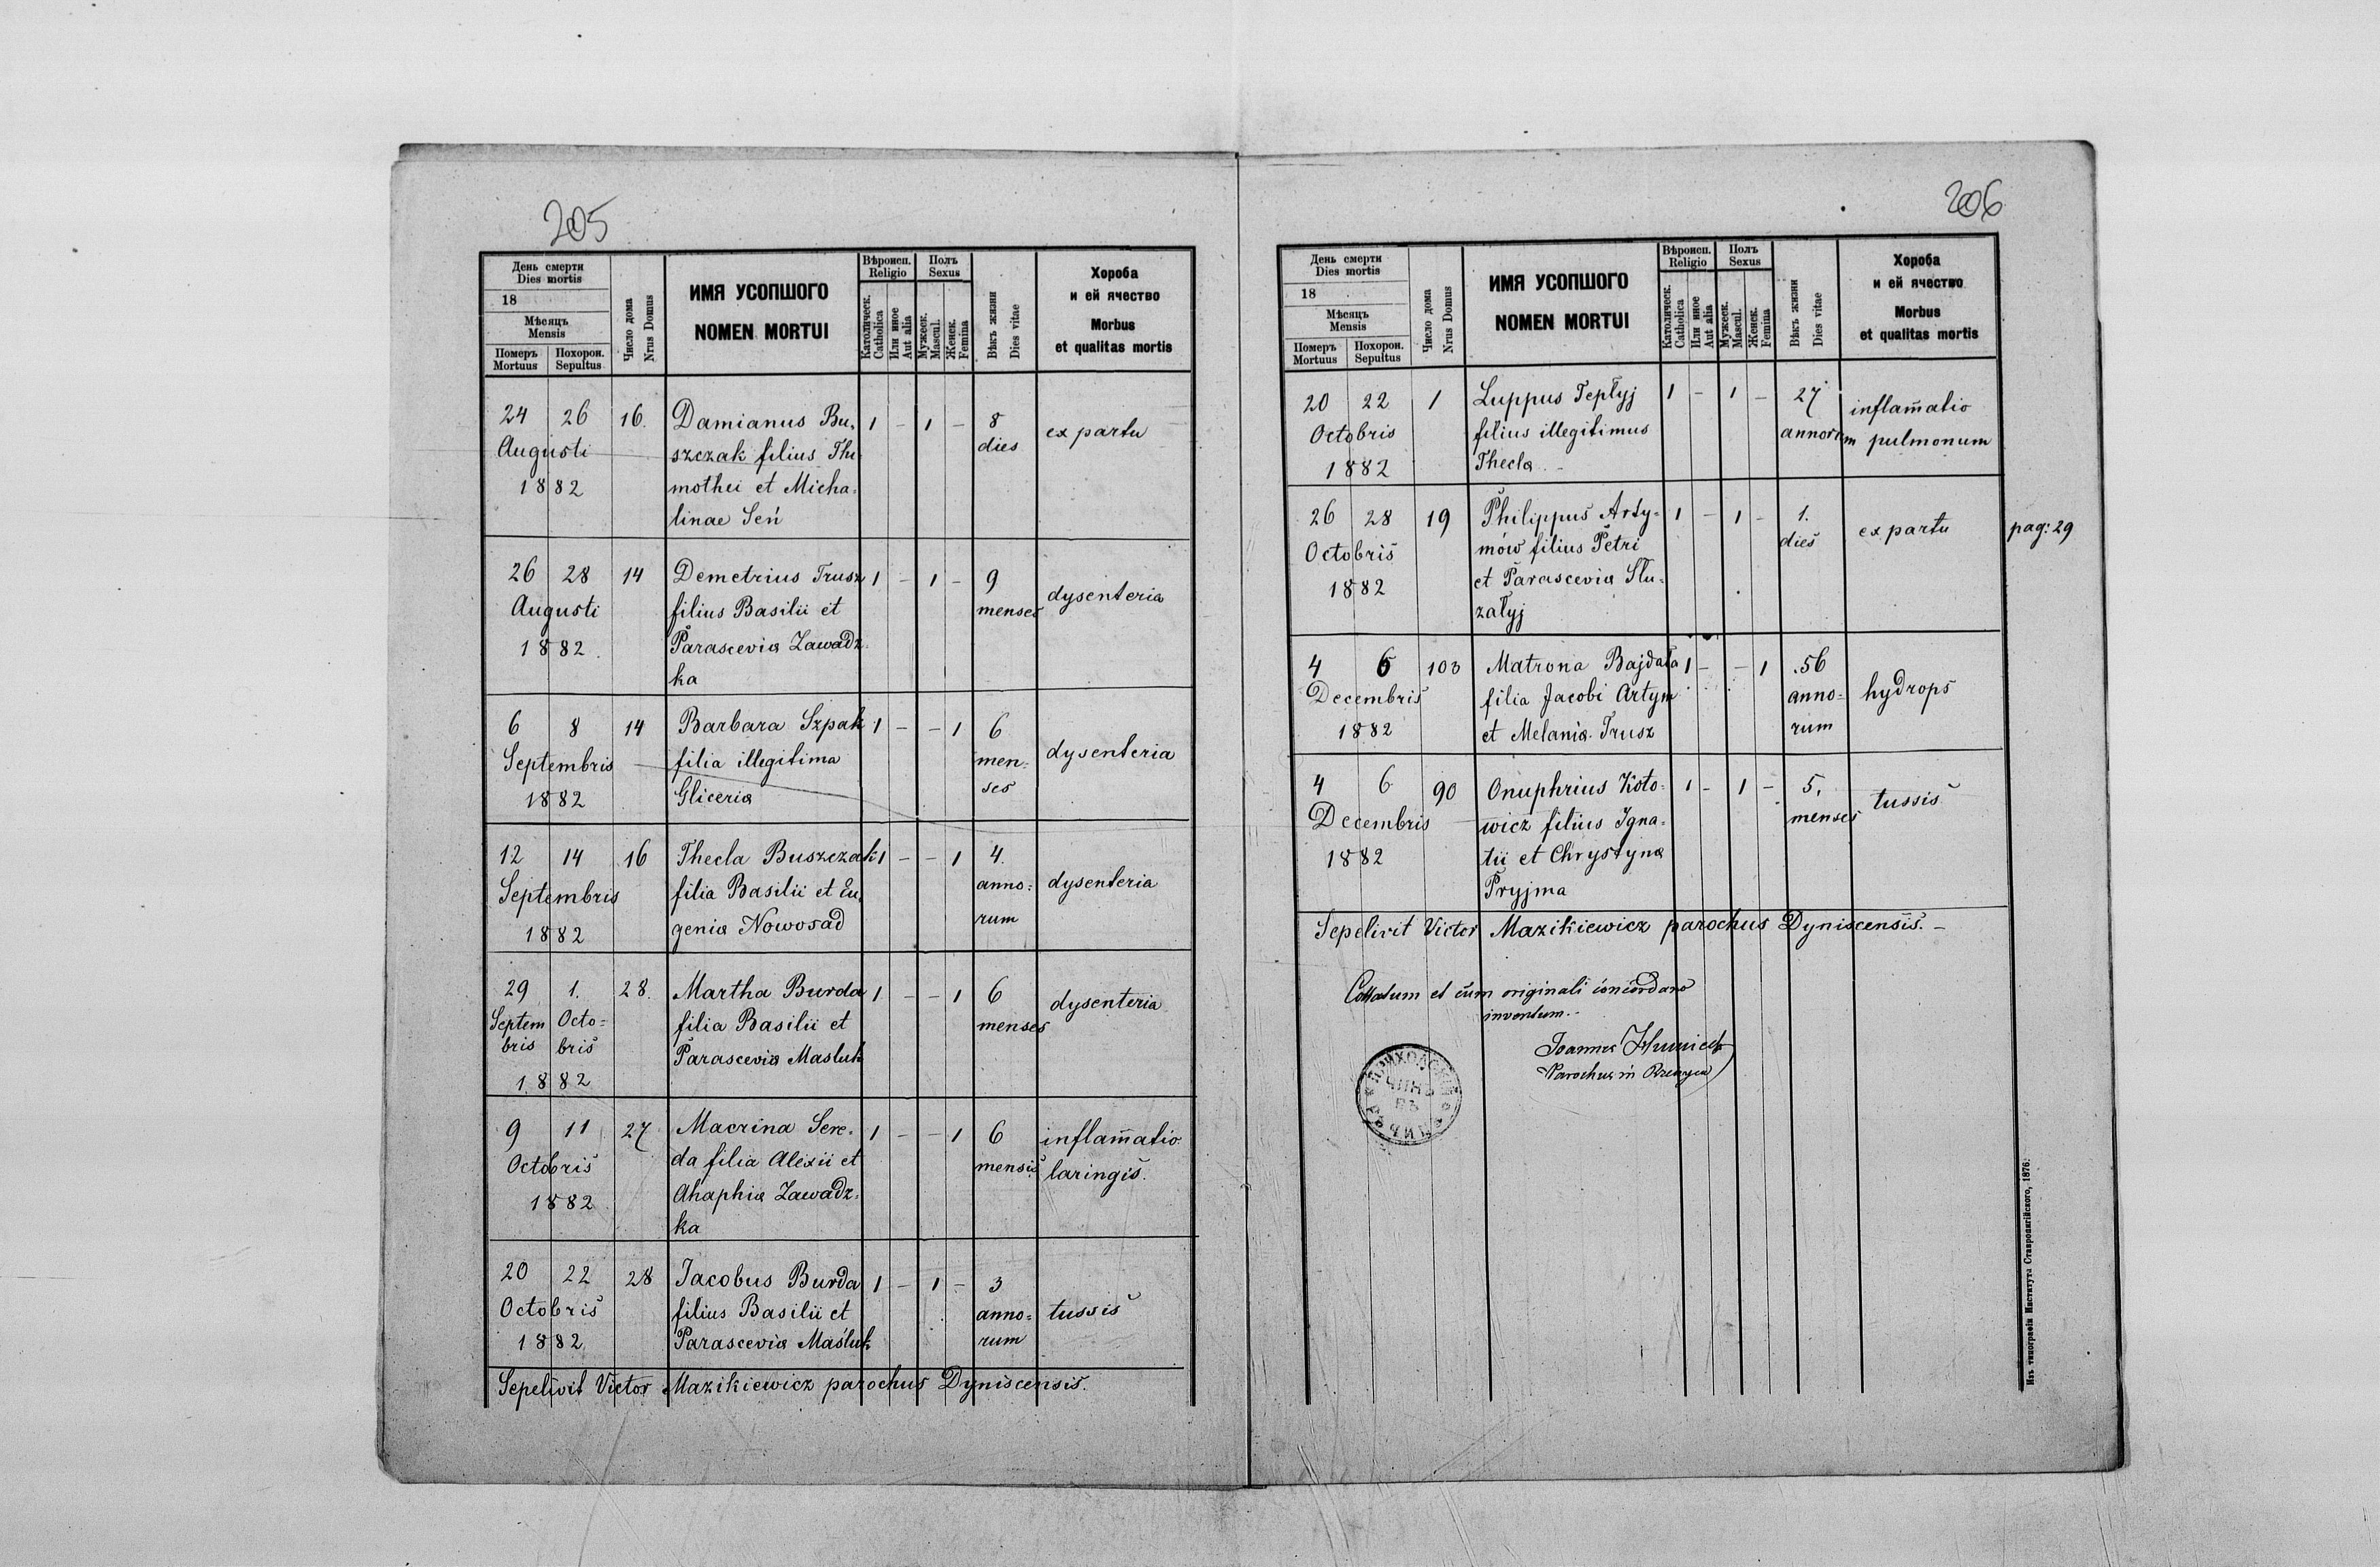 205
День смерти
Dies mortis
18
Мѣсяцъ
Mensis
Померъ
Mortuus
Похорон.
Sepultus
Число дома
Nrus Domus
ИМЯ УСОПШОГО
NOMEN MORTUI
Вѣроисп.
Religio
Католическ.
Catholica
Или иное
Aut alia
Полъ
Sexus
Мужеск.
Mascul.
Женск.
Femina
Вѣкъ жизни
Dies vitae
Хороба
и ей ячество
Morbus
et qualitas mortis
24 26 16. Damianus Bu- 1 - 1 - 8 ex partu
Augusti szczak filius Thi dies
1882 mothei et Micha-
linae Seń
26 28 14 Demetrius Trusz 1 - 1 - 9 dysenteria
Augusti filius Basilii et menses
1882. Parascevia Zawadz
ka
6 8 14 Barbara Szpak 1 - - 1 6 dysenteria
Septembris filia illegitima men-
1882 Gliceria ses
12 14 16 Thecla Buszczak 1 - - 1 4. dysenteria
Septembris filia Basilii et Eu- anno-
1882 genia Nowosad rum
29 1. 28. Martha Burda 1 - - 1 6 dysenteria
Septem Octo- filia Basilii et menses
bris bris Parascevia Masluk
1882
9 11 27 Macrina Sere- 1 - - 1 6 inflam̄atio
Octobris da filia Alexii et mensis laringis.
1882 Ahaphia Zawadz-
ka
20 22 28 Jacobus Burda 1 - 1 - 3 tussis
Octobris filius Basilii et anno-
1882 Parascevia Maśluk rum
Sepelivit Victor Mazikiewicz parochus Dyniscensis.
206
День смерти
Dies mortis
18
Мѣсяцъ
Mensis
Померъ
Mortuus
Похорон.
Sepultus
Число дома
Nrus Domus
ИМЯ УСОПШОГО
NOMEN MORTUI
Вѣроисп.
Religio
Католическ.
Catholica
Или иное
Aut alia
Полъ
Sexus
Мужеск.
Mascul.
Женск.
Femina
Вѣкъ жизни
Dies vitae
Хороба
и ей ячество
Morbus
et qualitas mortis
20 22 1 Luppus Tepłyj 1 - 1 - 27 inflam̄atio
Octobris filius illegitimus annorum pulmonum
1882 Thecla. -
26 28 19 Philippus Arty- 1 - 1 - 1. ex partu pag: 29
Octobris mów filius Petri dies
1882 et Parascevia Słu-
załyj
4 6 103 Matrona Bajdała 1 - - 1 56 hydrops
Decembris filia Jacobi Artym anno-
1882 et Melania Trusz rum
4 6 90 Onuphrius Koto- 1 - 1 - 5. tussis
Decembris wicz filius Igna- menses
1882 tii et Chrystyna
Pryjma
Sepelivit Victor Mazikiewicz parochus Dyniscensis. -
Collatum et cum originali concordans
inventum. -
Joannes
Parochus in
Изъ типографіи Института Ставропигійского, 1876.